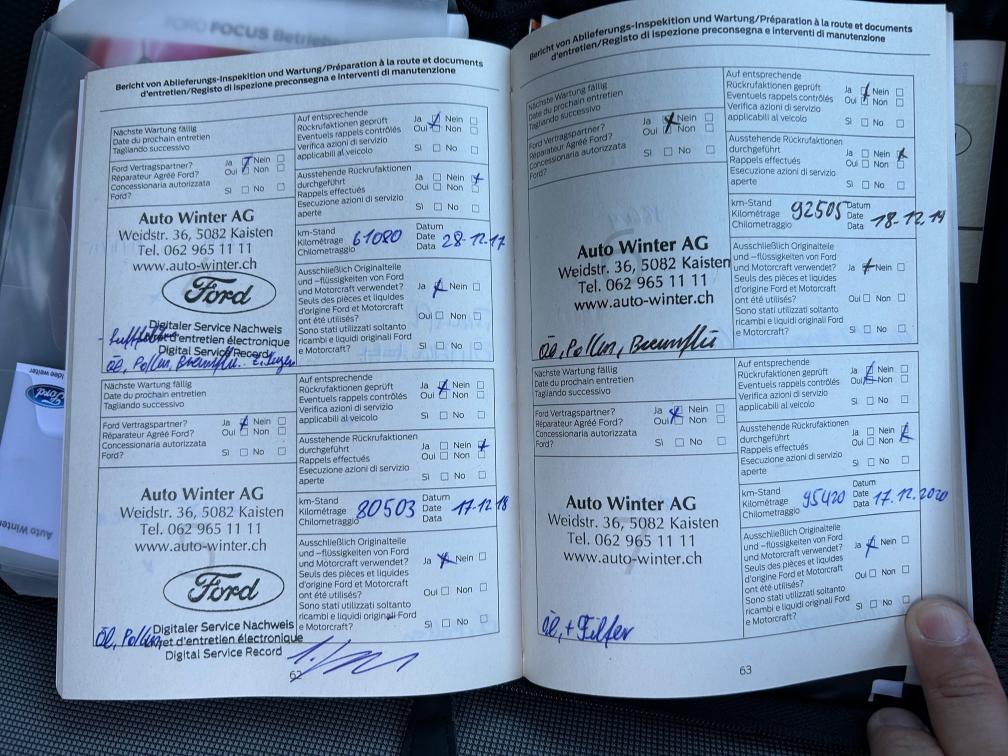 FORD FOCUS Betrie
Bericht von Ablieferungs-Inspektion und Wartung/Préparation à la route et documents
d'entretien/Registo di ispezione preconsegna e interventi di manutenzione
Nächste Wartung fällig
Date du prochain entretien
Tagliando successivo
Ford Vertragspartner? Ja Nein
Réparateur Agréé Ford? Oui Non
Concessionaria autorizzata
Ford? Sì No
Auf entsprechende
Rückrufaktionen geprüft Ja Nein
Eventuels rappels contrôlés Oui Non
Verifica azioni di servizio
applicabili al veicolo Sì No
Ausstehende Rückrufaktionen
durchgeführt Ja Nein
Rappels effectués Oui Non
Esecuzione azioni di servizio
aperte Sì No
Auto Winter AG
Weidstr. 36, 5082 Kaisten
Tel. 062 965 11 11
www.auto-winter.ch
Ford
Digitaler Service Nachweis
Carnet d'entretien électronique
Digital Service Record
Öl, Pollen,
km-Stand
Kilométrage 61080
Chilometraggio
Datum
Date 28.12.17
Data
Ausschließlich Originalteile
und -flüssigkeiten von Ford
und Motorcraft verwendet? Ja Nein
Seuls des pièces et liquides
d'origine Ford et Motorcraft
ont été utilisés? Oui Non
Sono stati utilizzati soltanto
ricambi e liquidi originali Ford
e Motorcraft? Sì No
Nächste Wartung fällig
Date du prochain entretien
Tagliando successivo
Ford Vertragspartner? Ja Nein
Réparateur Agréé Ford? Oui Non
Concessionaria autorizzata
Ford? Sì No
Auf entsprechende
Rückrufaktionen geprüft Ja Nein
Eventuels rappels contrôlés Oui Non
Verifica azioni di servizio
applicabili al veicolo Sì No
Ausstehende Rückrufaktionen
durchgeführt Ja Nein
Rappels effectués Oui Non
Esecuzione azioni di servizio
aperte Sì No
Auto Winter AG
Weidstr. 36, 5082 Kaisten
Tel. 062 965 11 11
www.auto-winter.ch
Ford
Digitaler Service Nachweis
d'entretien électronique
Digital Service Record
Öl, Pollen
km-Stand
Kilométrage 80503
Chilometraggio
Datum
Date 17.12.18
Data
Ausschließlich Originalteile
und -flüssigkeiten von Ford
und Motorcraft verwendet? Ja Nein
Seuls des pièces et liquides
d'origine Ford et Motorcraft
ont été utilisés? Oui Non
Sono stati utilizzati soltanto
ricambi e liquidi originali Ford
e Motorcraft? Sì No
62
Bericht von Ablieferungs-Inspektion und Wartung/Préparation à la route et documents
d'entretien/Registo di ispezione preconsegna e interventi di manutenzione
Nächste Wartung fällig
Date du prochain entretien
Tagliando successivo
Ford Vertragspartner? Ja Nein
Réparateur Agréé Ford? Oui Non
Concessionaria autorizzata
Ford? Sì No
Auf entsprechende
Rückrufaktionen geprüft Ja Nein
Eventuels rappels contrôlés Oui Non
Verifica azioni di servizio
applicabili al veicolo Sì No
Ausstehende Rückrufaktionen
durchgeführt Ja Nein
Rappels effectués Oui Non
Esecuzione azioni di servizio
aperte Sì No
Auto Winter AG
Weidstr. 36, 5082 Kaisten
Tel. 062 965 11 11
www.auto-winter.ch
Öl, Pollen, Bremsflü
km-Stand
Kilométrage 92505
Chilometraggio
Datum
Date 18.12.19
Data
Ausschließlich Originalteile
und -flüssigkeiten von Ford
und Motorcraft verwendet? Ja Nein
Seuls des pièces et liquides
d'origine Ford et Motorcraft
ont été utilisés? Oui Non
Sono stati utilizzati soltanto
ricambi e liquidi originali Ford
e Motorcraft? Sì No
Nächste Wartung fällig
Date du prochain entretien
Tagliando successivo
Ford Vertragspartner? Ja Nein
Réparateur Agréé Ford? Oui Non
Concessionaria autorizzata
Ford? Sì No
Auf entsprechende
Rückrufaktionen geprüft Ja Nein
Eventuels rappels contrôlés Oui Non
Verifica azioni di servizio
applicabili al veicolo Sì No
Ausstehende Rückrufaktionen
durchgeführt Ja Nein
Rappels effectués Oui Non
Esecuzione azioni di servizio
aperte Sì No
Auto Winter AG
Weidstr. 36, 5082 Kaisten
Tel. 062 965 11 11
www.auto-winter.ch
Öl, + Filter
km-Stand
Kilométrage 95420
Chilometraggio
Datum
Date 17.12.2020
Data
Ausschließlich Originalteile
und -flüssigkeiten von Ford
und Motorcraft verwendet? Ja Nein
Seuls des pièces et liquides
d'origine Ford et Motorcraft
ont été utilisés? Oui Non
Sono stati utilizzati soltanto
ricambi e liquidi originali Ford
e Motorcraft? Sì No
63
Idee weiter
Ford
Auto Winter